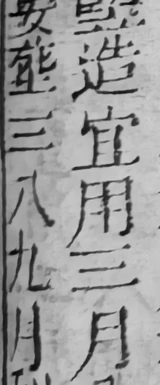 造宜用三月
安塟三八九月